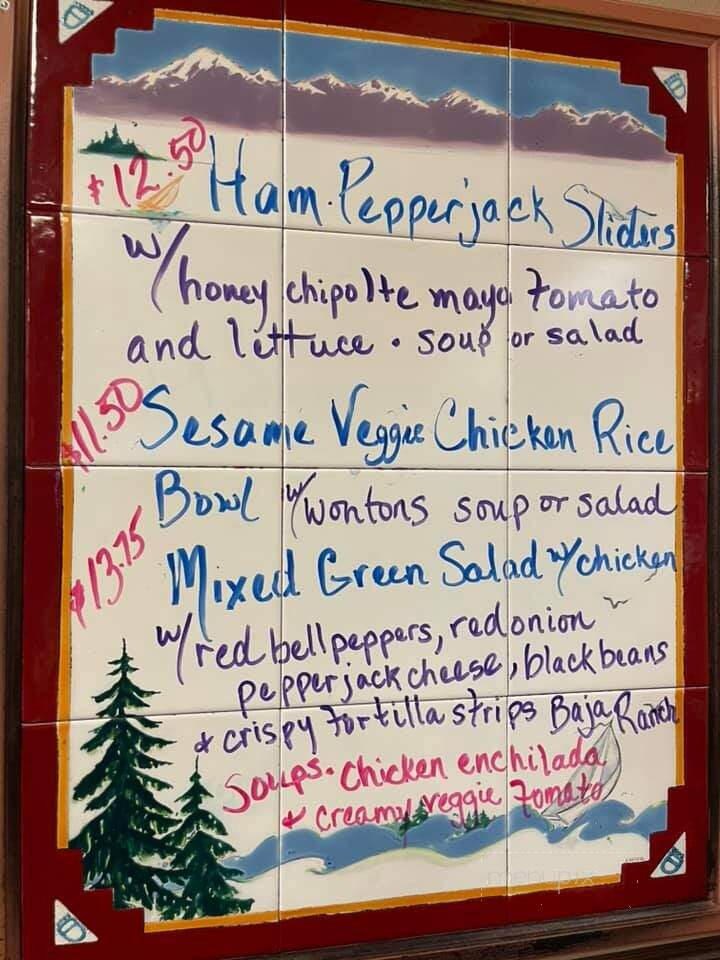 $12.50 Ham·Pepperjack Sliders
w/honey chipolte mayo tomato
and lettuce · soup or salad
$11.50 Sesame Veggie Chicken Rice
Bowl w/wontons soup or salad
$13.75 Mixed Green Salad w/chicken
w/red bell peppers, red onion
pepperjack cheese, black beans
& crispy tortilla strips Baja Ranch
Soups· Chicken enchilada
& creamy veggie tomato